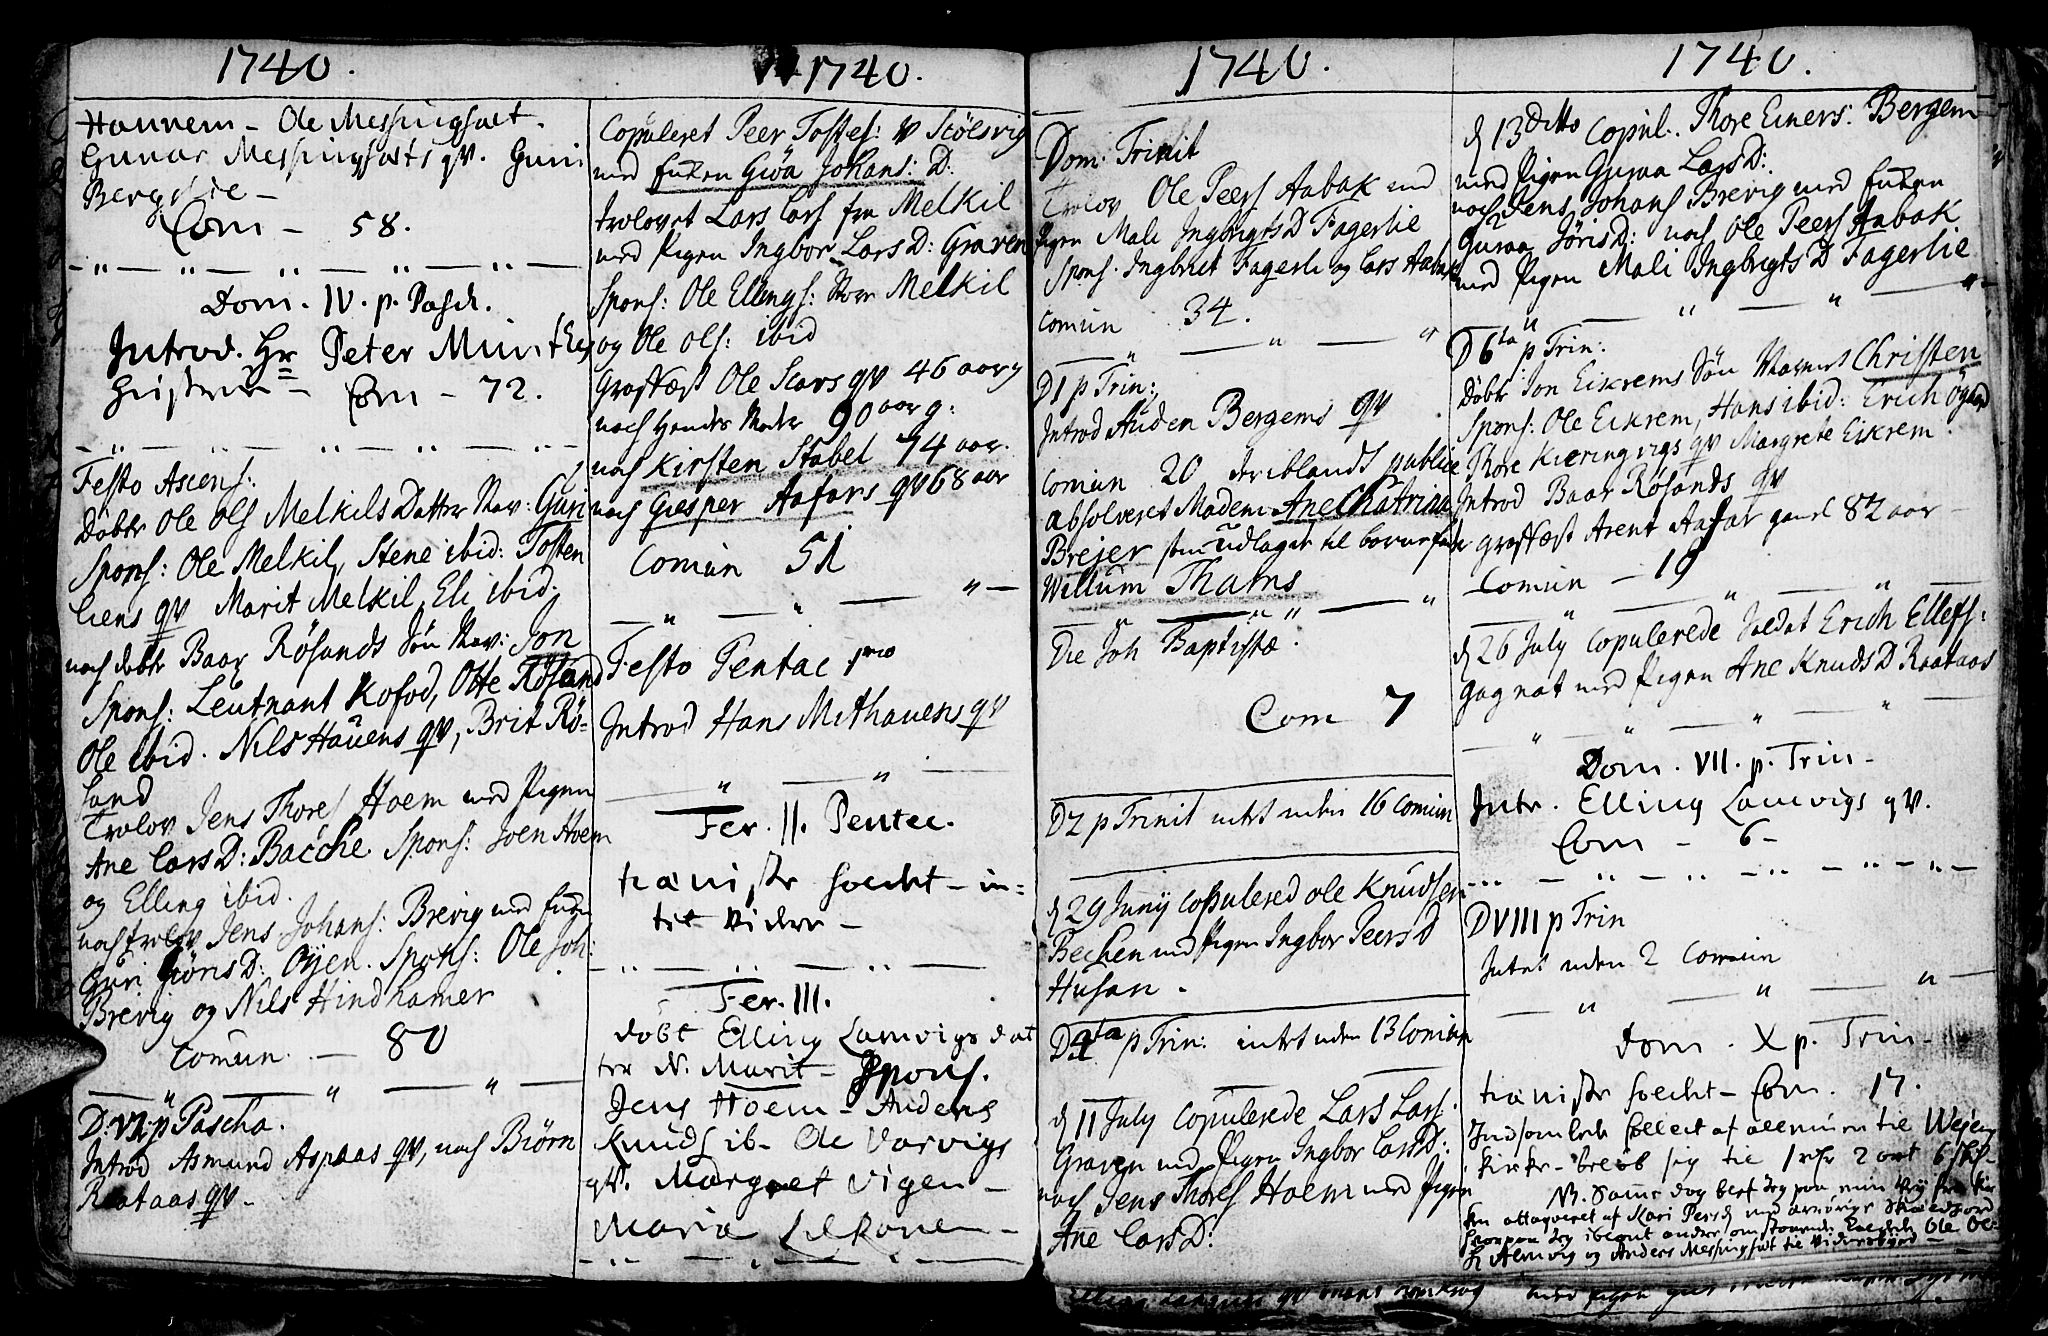 1740.
Haurem - Ole Messingsæt.
Gunar Messingsæts qv. Guri
Bergslie -
Com - 58.
Dom. IV. p. Pasch.
Introd. Hr Peter Munthes
Com - 72.
Festo Ascens:
Døbt Ole Ols Melkils Datter Nav: Guri
Spons: Ole Melkil, Stene ibid: Tosten
Liens qv Marit Melkil, Eli ibid.
noch døbt Baar Røsands Søn Nav: Jon
Spons: Leutnant Kofod, Otte Røsand
Ole ibid. Nils Hauens qv, Brit Rø-
sand
Trolov Jens Thores Hoem med Pigen
Ane Lars D: Bacche Spons: Joen Hoem
og Elling ibid.
noch trolov Jens Johans: Brevig med Enken
Guri Jøris D: Øyen. Spons: Ole Joh:
Brevig og Nils Hindhamer
Comun. - 80
D. VI. p Pascha.
Introd Asmund Aspaas qv, noch Biørn
Raataas qv -
1740.
Copuleret Peer Tostes: Stølsvig
med Enken Giøa Johans: D:
trolovet Lars Lars fra Melkil
med Pigen Ingbor Lars D: Graven
Spons: Ole Ellings: Melkil
og Ole Ols: ibid
Graffæst Ole Scars qv 46 aar g
noch Hendes Moder 90 aar g:
noch Kirsten Stabel 74 aar.
noch Giesper Aafars qv 68 aar
Comun 51
Festo Pentac 1mo
Introd Hans Mithauens qv
Fer. II. Pentec.
tienister holdt - in-
tet videre -
Fer. III.
døbt Elling Lamvigs dat
ter N. Marit - Spons.
Jens Hoem - Anders
Knuds ib - Ole Varvigs
qv. Margret Vigen -
Maria
1740.
Dom. Trinit
Trolov Ole Peers Aabak med
Pigen Mali Ingbrigts D Fagerlie
Spons. Ingbriet Fagerli og Lars Aabak
Comun 34.
D 1 p Trin:
Introd Auden Bergems qv
Comun 20 iblandt publice
absolveret Madem Ane Chatrina
Brejer som udlagde til barnefader
Willum Thams
Die Joh Baptistæ.
Com 7
D 2 p Trinit intet uden 16 Comun
d 29 Junij Copulered Ole Knudsen
Bechen med Pigen Ingbor Peers D
Husan.
D 4ta p Trin: intet uden 13 Comun
d 11 July Copulerede Lars Lars.
Graven med Pigen Ingbor Lars D:
noch Jens Thores Hoem med Pigen
Ane Lars D:
1740.
d 13 Ditto Copul. Thore Einers: Bergem
med Pigen Guraa Lars D:
noch Jens Johans Brevig med Enken
Guraa Jøris D: noch Ole Peers Aabak
med Pigen Mali Ingbrigts D Fagerlie
D 6ta p Trin:
Døbt Jon Eikrems Søn Christen
Spons: Ole Eikrem, Hans ibid: Erich Øgaard
Thore Kieringvigs qv Margrete Eikrem.
Introd Baar Røsands qv
graffæst Arent Aafar gaml 82 aar
Comun - 19
d 26 July Copulerede Soldat Erich Ellefs:
Gagnat med Pigen Ane Knuds D Raataas
Dom. VII. p. Trin -
Intr. Elling Lamvigs qv.
Com - 6 -
D VIII p Trin
Intet uden 2 Comun
Dom. X p. Trin -
tienister holdt - Com. 17.
Indsamlede Collect af allmuen til Wejens
Kirke - beløb sig til 1 rdr 2 ort 6 sk -
NB. Samme dag blef Jeg paa min Vej fra Kir
ken attaqveret af Kari Pers D
hvorpaa Jeg iblant andre omstaaende Ole Ol
Almvig og Anders Messingsæt til vidnesbyrd -